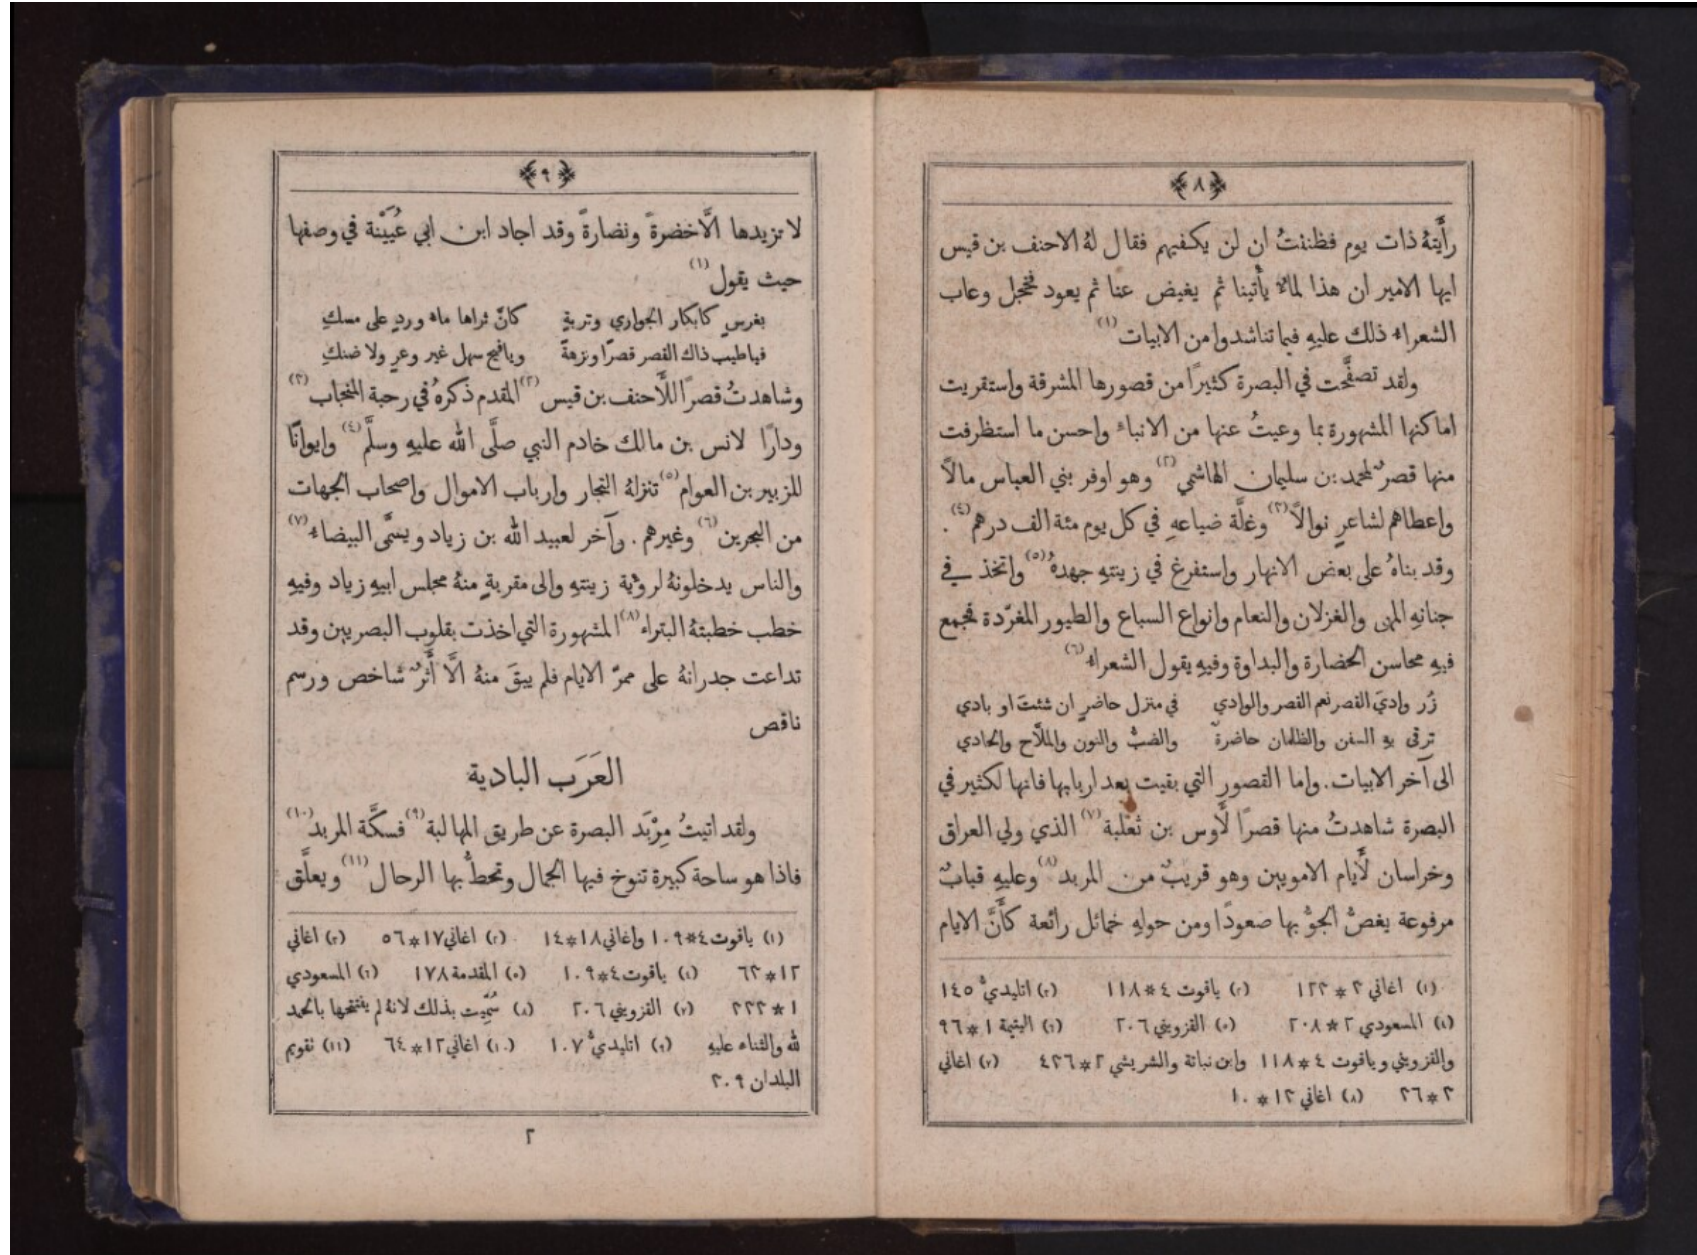 ﴿٨﴾
رأَيتهُ ذات يوم فظننتُ ان لن يكفيهم فقال لهُ الاحنف بن قيس
ايها الامير ان هذا لمآء يأتينا ثم يغيض عنا ثم يعود فخجل وعاب
الشعراء ذلك عليهِ فيما تناشدوا من الابيات (١)
ولقد تصفَّحت في البصرة كثيرًا من قصورها المشرقة واستقريت
اماكنها المشهورة بما وعيتُ عنها من الانباء واحسن ما استظرفت
منها قصرٌ لمحمد بن سليمان الهاشمي (٢) وهو اوفر بني العباس مالاً
واعطاهم لشاعرٍ نوالاً (٣) وغلَّة ضياعهِ في كل يوم مئة الف درهم (٤) .
وقد بناهُ على بعض الانهار واستفرغ في زينتهِ جهدهُ (٥) واتخذ في
جنانهِ المهى والغزلان والنعام وانواع السباع والطيور المغرّدة فجمع
فيهِ محاسن الحضارة والبداوة وفيهِ يقول الشعراء (٦)
زُر واديَ القصر نعم القصر والوادي في منزل حاضرٍ ان شئتَ او بادي
ترقى بهِ السفن والظلمان حاضرةً والضبُّ والنون والملَّاح والحادي
الى آخر الابيات. واما القصور التي بقيت بعد اربابها فانها لكثير في
البصرة شاهدتُ منها قصرًا لأَوس بن ثعلبة (٧) الذي ولي العراق
وخراسان لأَيام الامويين وهو قريبٌ من المربد (٨) وعليهِ قبابٌ
مرفوعة يغصُّ الجوُّ بها صعودًا ومن حولهِ خمائل رائعة كأَنَّ الايام
(١) اغاني ٣*١٢٢ (٢) ياقوت ٤*١١٨ (٣) اتليديُّ ١٤٥
(٤) المسعودي ٢*٢٠٨ (٥) القزويني ٢٠٦ (٦) اليتيمة ١*٩٦
والقزويني وياقوت ٤*١١٨ وابن نباتة والشريشي ٢*٤٢٦ (٧) اغاني
٢*٢٦ (٨) اغاني ١٢*١٠
﴿٩﴾
لا تزيدها الَّا خضرةً ونضارةً وقد اجاد ابن ابي عُيَيْنة في وصفها
حيث يقول (١)
بغرسٍ كابكار الجواري وتربةٍ كانَّ ثراها ماء وردٍ على مسكِ
فيا طيب ذاك القصر قصرًا ونزهةً ويا فيح سهل غير وعرٍ ولا ضنكِ
وشاهدتُ قصرًا للأَحنف بن قيس (٢) المقدم ذكرهُ في رحبة المنجاب (٣)
ودارًا لانس بن مالك خادم النبي صلَّى الله عليهِ وسلَّم (٤) وايوانًا
للزبير بن العوام (٥) تنزلهُ التجار وارباب الاموال واصحاب الجهات
من البحرين (٦) وغيرهم . وآخر لعبيد الله بن زياد ويسمَّى البيضاء (٧)
والناس يدخلونهُ لرؤية زينتهِ والى مقربةٍ منهُ مجلس ابيهِ زياد وفيهِ
خطب خطبتهُ البتراء (٨) المشهورة التي اخذت بقلوب البصريين وقد
تداعت جدرانهُ على ممرّ الايام فلم يبقَ منهُ الَّا أَثرٌ شاخص ورسم
ناقص
العَرَب البادية
ولقد اتيتُ مِرْبَد البصرة عن طريق المهالبة (٩) فسكَّة المربد (١٠)
فاذا هو ساحة كبيرة تنوخ فيها الجمال وتحطُّ بها الرحال (١١) ويعلَّق
(١) ياقوت ٤*١٠٩ واغاني ١٨*١٤ (٢) اغاني ١٧*٥٦ (٣) اغاني
١٢*٦٢ (٤) ياقوت ٤*١٠٩ (٥) المقدمة ١٧٨ (٦) المسعودي
١*٢٢٢ (٧) القزويني ٢٠٦ (٨) سُمّيت بذلك لانهُ لم يفتتحها بالحمد
لله والثناء عليهِ (٩) اتليديُّ ١٠٧ (١٠) اغاني ١٢*٦٤ (١١) تقويم
البلدان ٢٠٩
٢